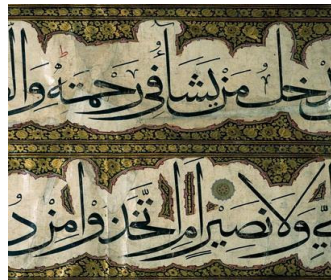 يدخل من يشاء في رحمته وا
ولا نصير ام اتخذوا من د